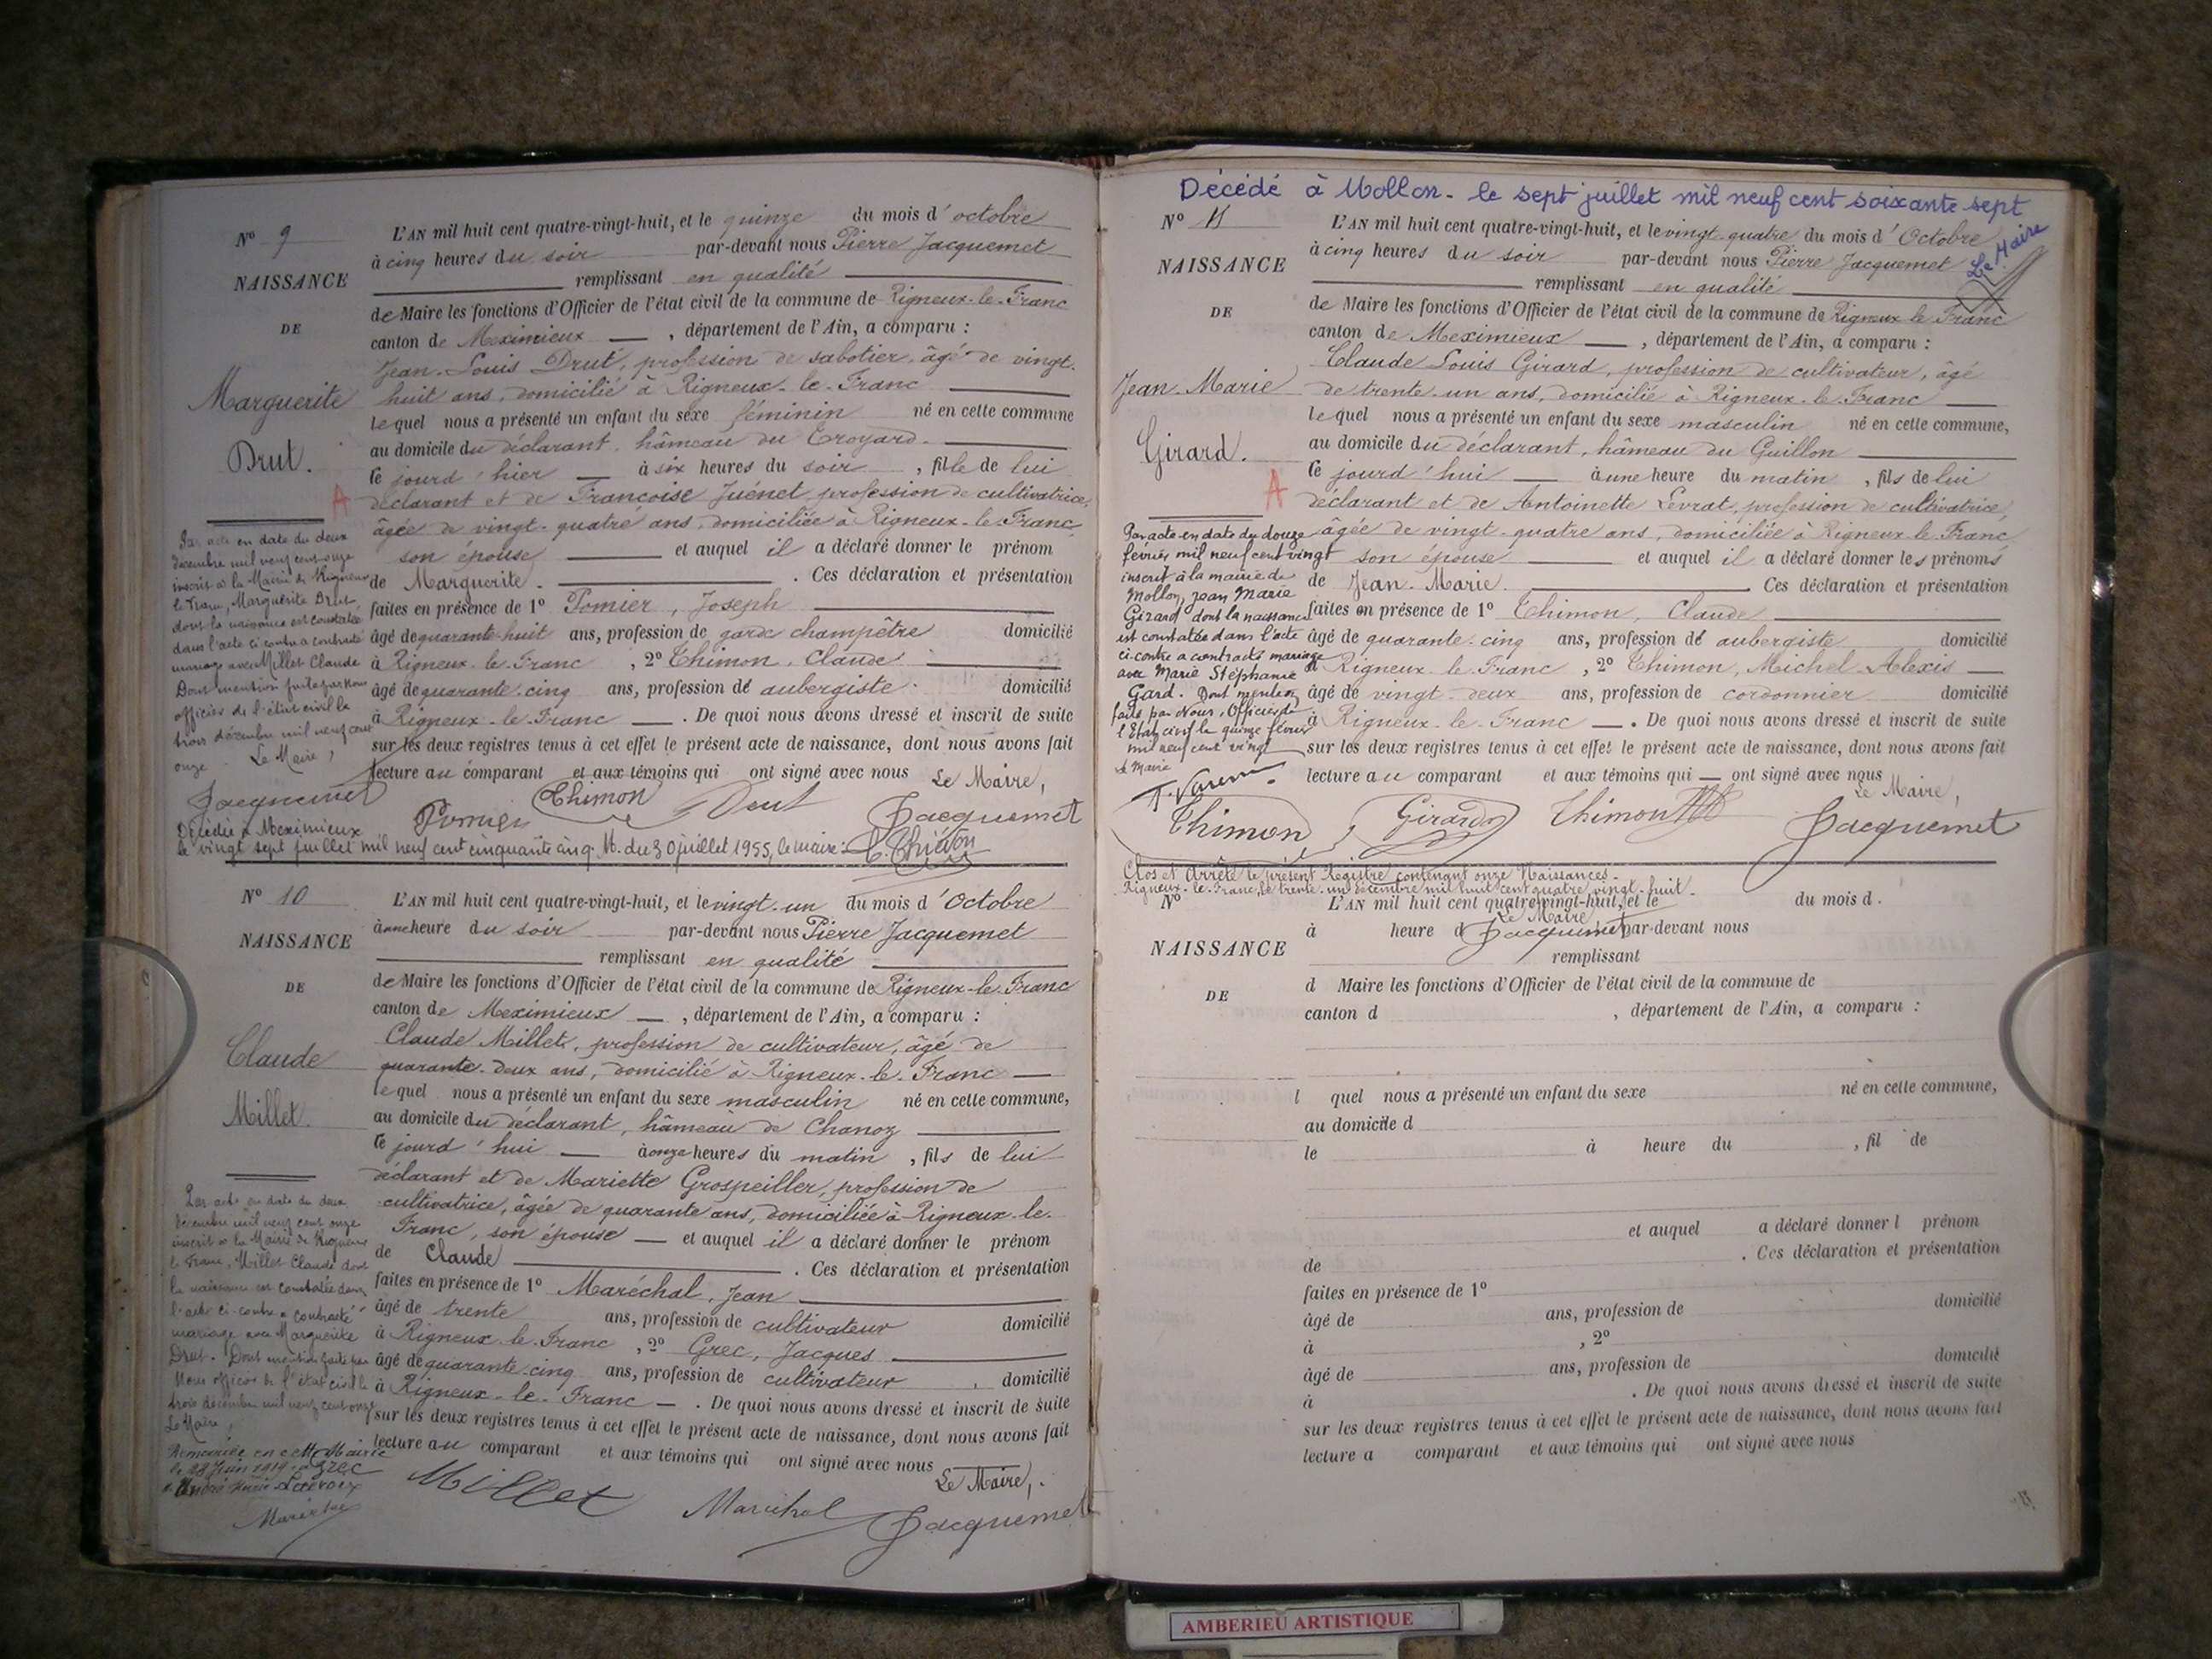 Nº 9
NAISSANCE
DE
Marguerite
Drut.
L'AN mil huit cent quatre-vingt-huit, et le quinze du mois d'octobre
à cinq heures du soir par-devant nous Pierre Jacquemet
remplissant en qualité
de Maire les fonctions d'Officier de l'état civil de la commune de Rigneux-le-Franc
canton de Meximieux, département de l'Ain, a comparu :
Jean-Louis Drut, profession de sabotier, âgé de vingt-
huit ans, domicilié à Rigneux-le-Franc
lequel nous a présenté un enfant du sexe féminin né en cette commune
au domicile du déclarant, hâmeau du Croyard.
le jourd'hier à six heures du soir, fille de lui
A
déclarant et de Françoise Juénet, profession de cultivatrice,
âgée de vingt-quatre ans, domiciliée à Rigneux-le-Franc,
son épouse et auquel il a déclaré donner le prénom
de Marguerite. Ces déclaration et présentation
faites en présence de 1º Pomier, Joseph
âgé de quarante-huit ans, profession de garde champêtre domicilié
à Rigneux-le-Franc, 2º Thimon, Claude
âgé de quarante-cinq ans, profession de aubergiste domicilié
à Rigneux-le-Franc. De quoi nous avons dressé et inscrit de suite
sur les deux registres tenus à cet effet le présent acte de naissance, dont nous avons fait
lecture au comparant et aux témoins qui ont signé avec nous Le Maire,
Par acte en date du deux
décembre mil neuf cent onze
inscrit à la Mairie de Rigneux
le Franc, Marguerite Drut
dont la naissance est constatée
dans l'acte ci contre a contracté
mariage avec Millet Claude
Dont mention faite par Nous
officier de l'état civil le
trois décembre mil neuf cent
onze. Le Maire,
Jacquemet
Pomier Thimon Drut Jacquemet
Décédée à Meximieux
le vingt sept juillet mil neuf cent cinquante cinq. M. du 30 juillet 1955, le maire:
Nº 10
NAISSANCE
DE
Claude
Millet.
L'AN mil huit cent quatre-vingt-huit, et le vingt-un du mois d'Octobre
à une heure du soir par-devant nous Pierre Jacquemet
remplissant en qualité
de Maire les fonctions d'Officier de l'état civil de la commune de Rigneux-le-Franc
canton de Meximieux, département de l'Ain, a comparu :
Claude Millet, profession de cultivateur, âgé de
quarante-deux ans, domicilié à Rigneux-le-Franc
lequel nous a présenté un enfant du sexe masculin né en cette commune,
au domicile du déclarant, hâmeau de Chanoz
le jourd'hui à onze heures du matin, fils de lui
déclarant et de Mariette Grospeiller, profession de
cultivatrice, âgée de quarante ans, domiciliée à Rigneux-le-
Franc, son épouse et auquel il a déclaré donner le prénom
de Claude. Ces déclaration et présentation
faites en présence de 1º Maréchal, Jean
âgé de trente ans, profession de cultivateur domicilié
à Rigneux-le-Franc, 2º Grec, Jacques
âgé de quarante-cinq ans, profession de cultivateur, domicilié
à Rigneux-le-Franc. De quoi nous avons dressé et inscrit de suite
sur les deux registres tenus à cet effet le présent acte de naissance, dont nous avons fait
lecture au comparant et aux témoins qui ont signé avec nous
Le Maire,
Par acte en date du deux
décembre mil neuf cent onze
inscrit à la Mairie de Rigneux
le Franc, Millet Claude dont
la naissance est constatée dans
l'acte ci-contre a contracté
mariage avec Marguerite
Drut. Dont mention faite par
Nous officier de l'état civil le
trois décembre mil neuf cent onze
Le Maire,
en cette Mairie
le 28 Juin 1919
Millet Grec Maréchal Jacquemet
Décédé à Mollon - le sept juillet mil neuf cent soixante sept
Le Maire
Nº 11
NAISSANCE
DE
Jean-Marie
Girard.
L'AN mil huit cent quatre-vingt-huit, et le vingt-quatre du mois d'Octobre
à cinq heures du soir par-devant nous Pierre Jacquemet
remplissant en qualité
de Maire les fonctions d'Officier de l'état civil de la commune de Rigneux le Franc
canton de Meximieux, département de l'Ain, a comparu :
Claude Louis Girard, profession de cultivateur, âgé
de trente-un ans, domicilié à Rigneux-le-Franc
lequel nous a présenté un enfant du sexe masculin né en cette commune,
au domicile du déclarant, hâmeau du Guillon
le jourd'hui à une heure du matin, fils de lui
A
déclarant et de Antoinette Levrat, profession de cultivatrice,
âgée de vingt-quatre ans, domiciliée à Rigneux le Franc
son épouse et auquel il a déclaré donner les prénoms
de Jean-Marie. Ces déclaration et présentation
faites en présence de 1º Thimon, Claude
âgé de quarante-cinq ans, profession de aubergiste domicilié
à Rigneux le Franc, 2º Thimon, Michel Alexis
âgé de vingt-deux ans, profession de cordonnier domicilié
à Rigneux-le-Franc. De quoi nous avons dressé et inscrit de suite
sur les deux registres tenus à cet effet le présent acte de naissance, dont nous avons fait
lecture au comparant et aux témoins qui ont signé avec nous
Le Maire,
Par acte en date du douze
février mil neuf cent vingt
inscrit à la mairie de
Mollon, Jean Marie
Girard dont la naissance
est constatée dans l'acte
ci-contre a contracté mariage
avec Marie Stéphanie
Gard. Dont mention
faite par Nous, Officier de
l'Etat civil le quinze février
mil neuf cent vingt
Le Maire
Thimon Girard Thimon Jacquemet
Clos et Arrêté le présent Registre contenant onze Naissances.
Rigneux-le-Franc, le trente-un Décembre mil huit cent quatre vingt-huit.
Le Maire
Jacquemet
Nº
NAISSANCE
DE
L'AN mil huit cent quatre-vingt-huit, et le du mois d
à heure d par-devant nous
remplissant
d Maire les fonctions d'Officier de l'état civil de la commune de
canton d , département de l'Ain, a comparu :
l quel nous a présenté un enfant du sexe né en cette commune,
au domicile d
le à heure du , fil de
et auquel a déclaré donner l prénom
de . Ces déclaration et présentation
faites en présence de 1º
âgé de ans, profession de domicilié
à , 2º
âgé de ans, profession de domicilié
à . De quoi nous avons dressé et inscrit de suite
sur les deux registres tenus à cet effet le présent acte de naissance, dont nous avons fait
lecture a comparant et aux témoins qui ont signé avec nous
AMBERIEU ARTISTIQUE